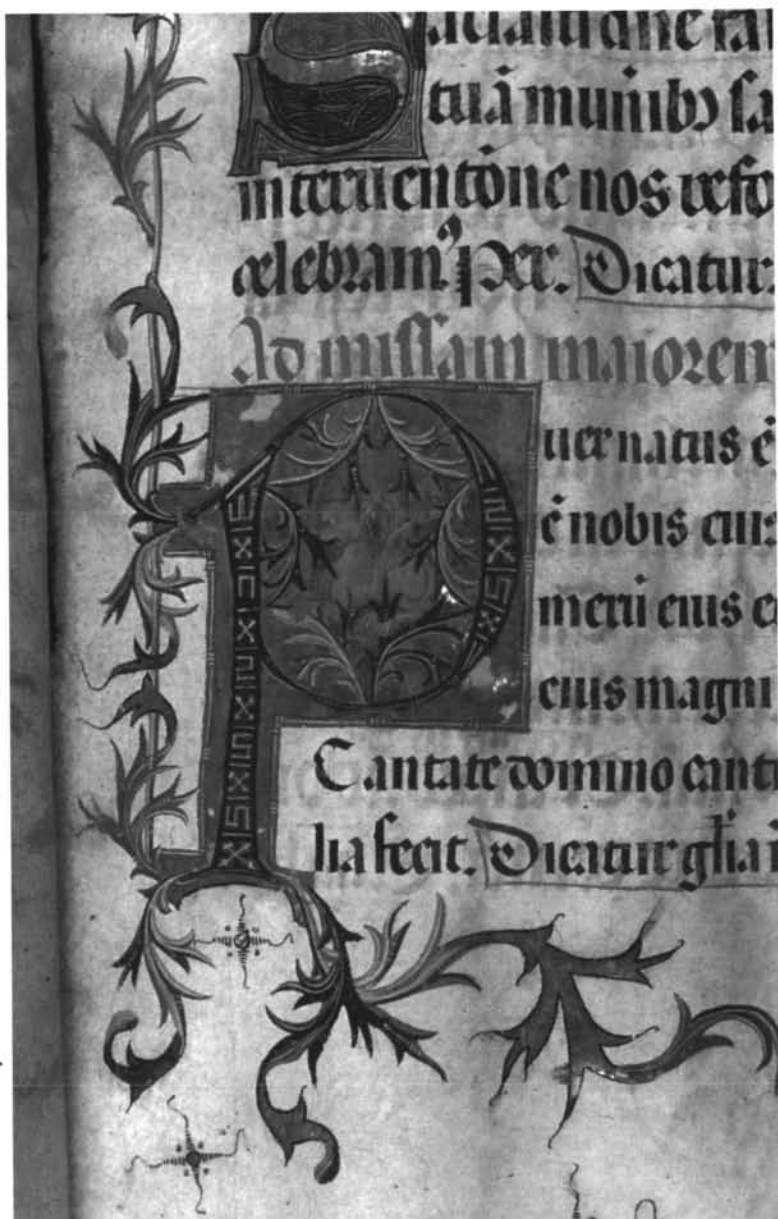 Saciasti dñe fa
tuā munibꝫ sa
interuentōne nos refo
celebramꝰ. per. Dicatur
Ad missam maiorem
Puer natus ē
ē nobis cuiꝰ
merū eius e
eius magni
Cantate domino canti
lia fecit. Dicatur gl̄ia